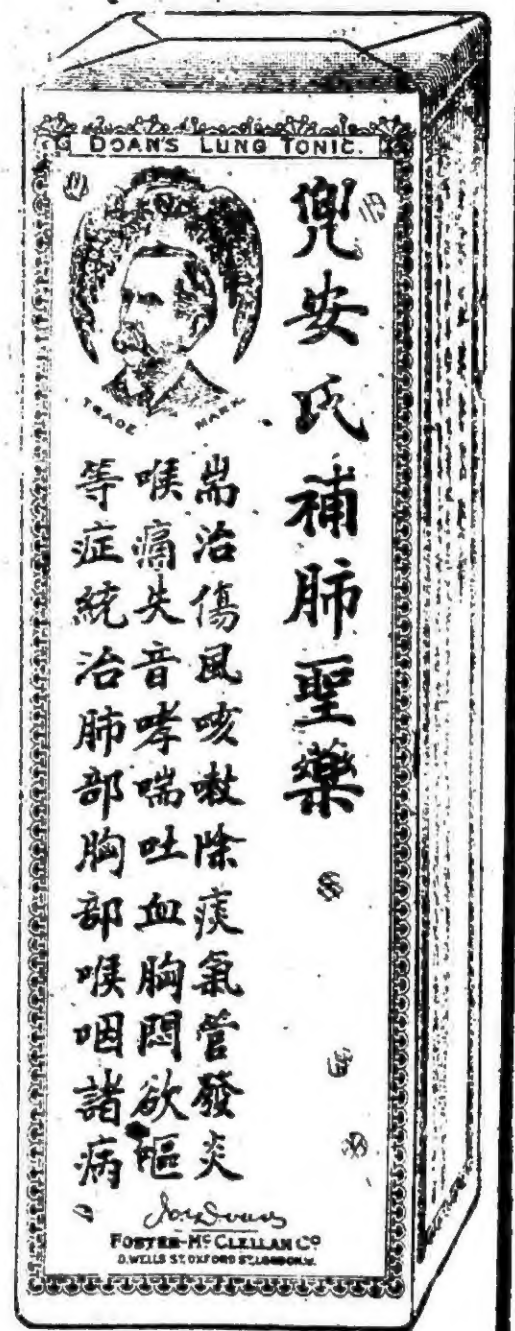 DOAN'S LUNG TONIC.
TRADE MARK.
兜安氏補肺聖藥
耑治傷風咳嗽除痰氣管發炎
喉痛失音哮喘吐血胸悶欲嘔
等症統治肺部胸部喉咽諸病
FOSTER-McCLELLAN Co
8, WELLS ST. OXFORD ST. LONDON. W.